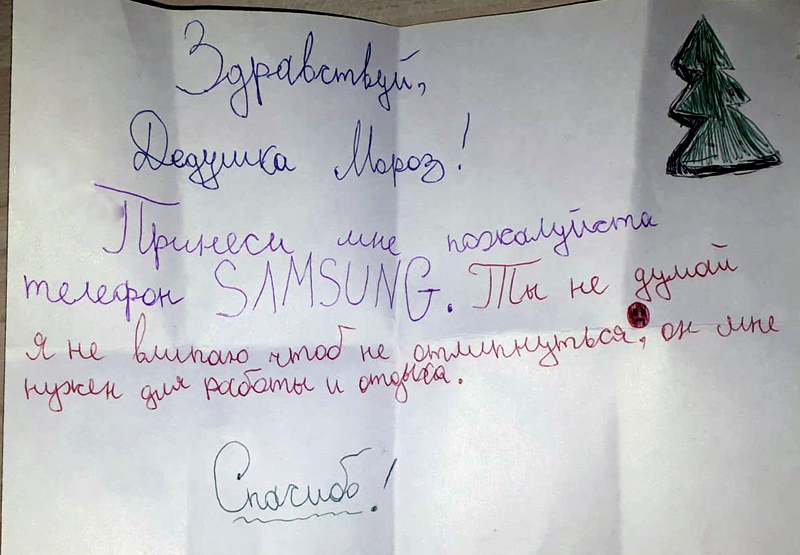 Здравствуй,
Дедушка Мороз!
Принеси мне пожалуйста
телефон SAMSUNG. Ты не думай
я не влипаю чтоб не отлипнуться, он мне
нужен для работы и отдыха.
Спасибо!